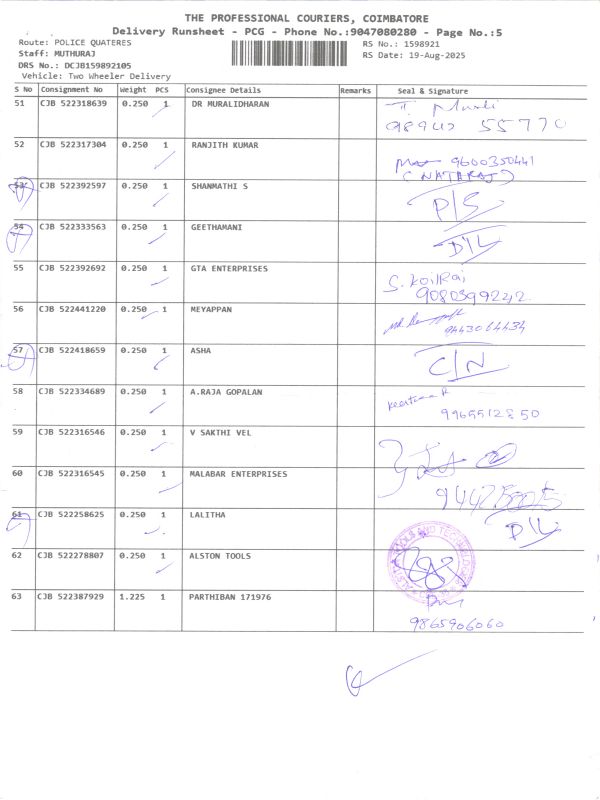 THE PROFESSIONAL COURIERS, COIMBATORE
Delivery Runsheet - PCG - Phone No.:9047080280 - Page No.:5
Route: POLICE QUATERES RS No.: 1598921
Staff: MUTHURAJ RS Date: 19-Aug-2025
DRS No.: DCJB159892105
Vehicle: Two Wheeler Delivery
S No Consignment No Weight PCS Consignee Details Remarks Seal & Signature
51 CJB 522318639 0.250 1 DR MURALIDHARAN T. Murali
98940 55770
52 CJB 522317304 0.250 1 RANJITH KUMAR 9600350441
(NATARAJ)
53 CJB 522392597 0.250 1 SHANMATHI S P/S
54 CJB 522333563 0.250 1 GEETHAMANI D/L
55 CJB 522392692 0.250 1 GTA ENTERPRISES S. KoilRaj
9080399242
56 CJB 522441220 0.250 1 MEYAPPAN 9443064434
57 CJB 522418659 0.250 1 ASHA C/N
58 CJB 522334689 0.250 1 A.RAJA GOPALAN Keertana R
9965512850
59 CJB 522316546 0.250 1 V SAKTHI VEL
60 CJB 522316545 0.250 1 MALABAR ENTERPRISES
61 CJB 522258625 0.250 1 LALITHA D/L
62 CJB 522278807 0.250 1 ALSTON TOOLS
63 CJB 522387929 1.225 1 PARTHIBAN 171976
9865906060